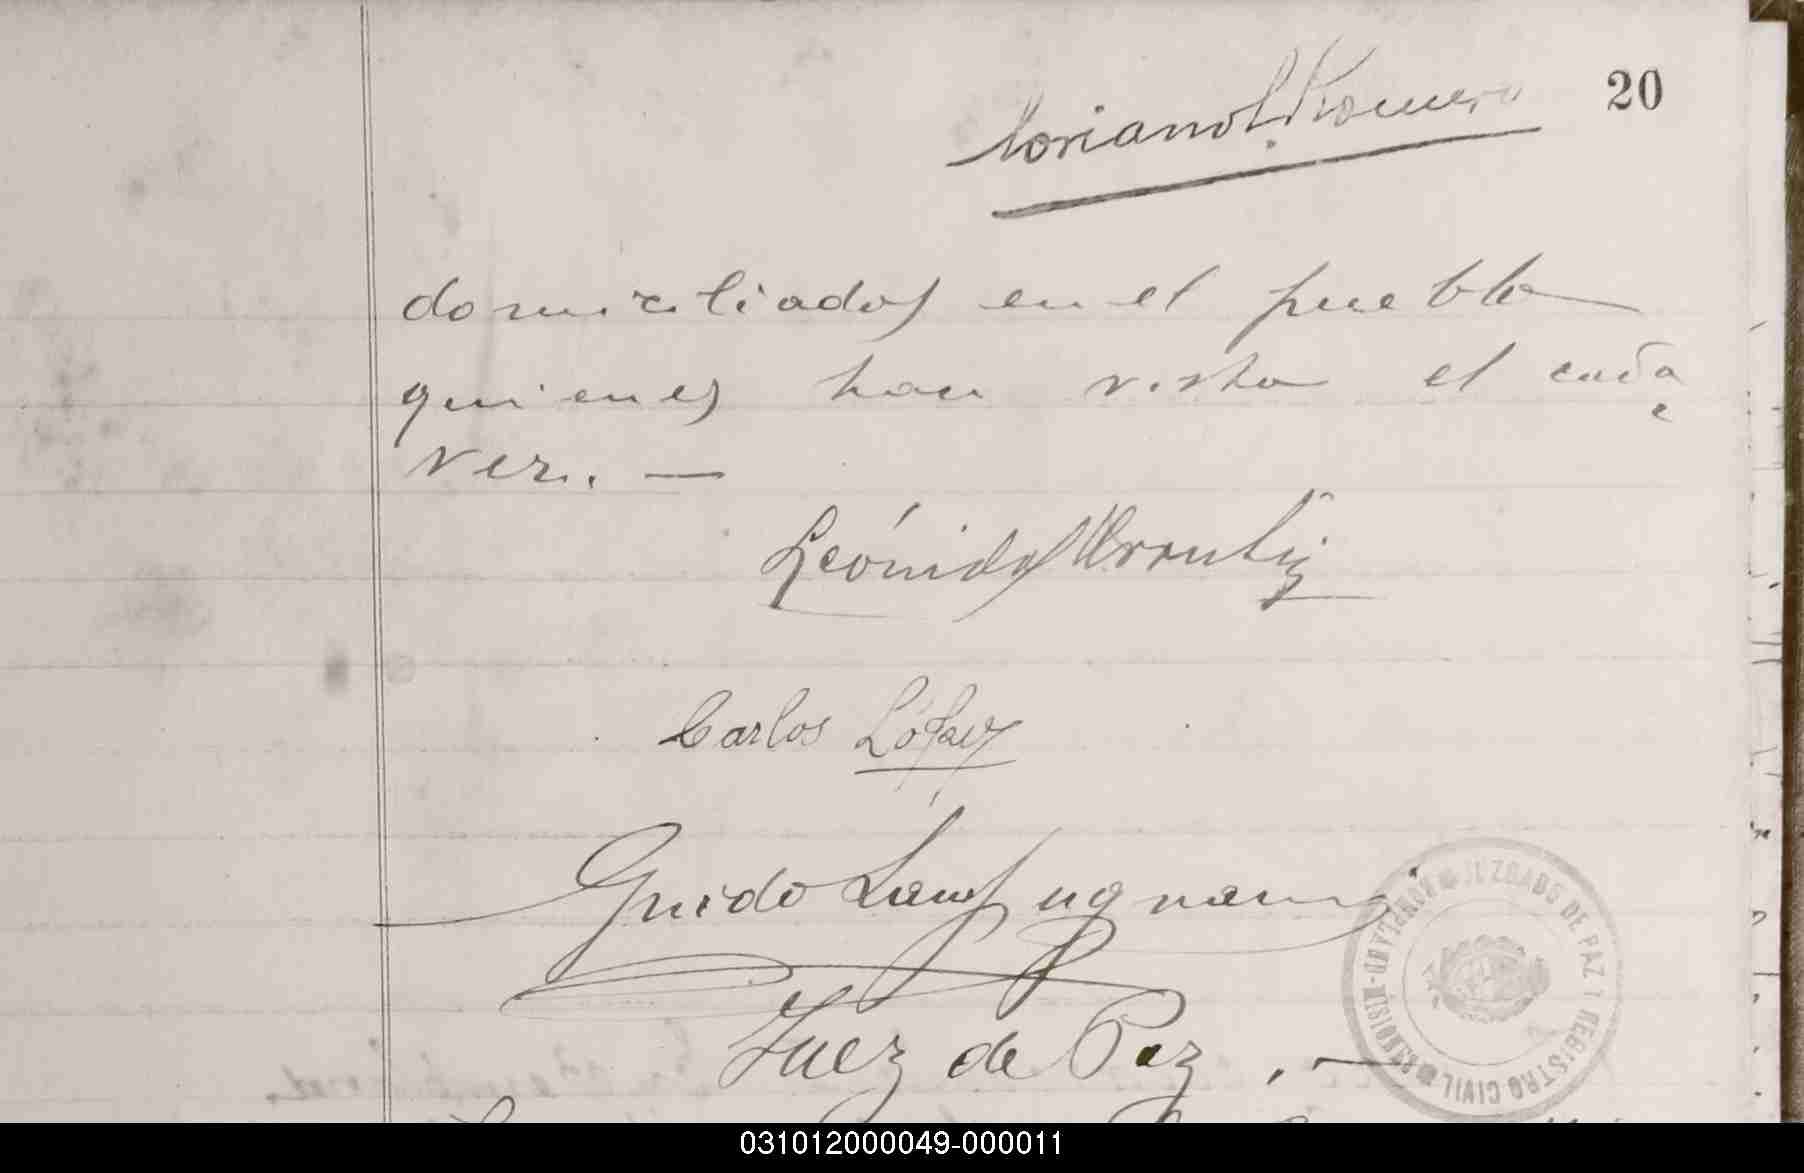 20
Romero
domiciliados en el pueblo
quienes han visto el cada
ver. —
Leónidas Urrutia
Carlos López
Guido Lampugnani
Juez de Paz. —
JUZGADO DE PAZ Y REGISTRO CIVIL
031012000049-000011